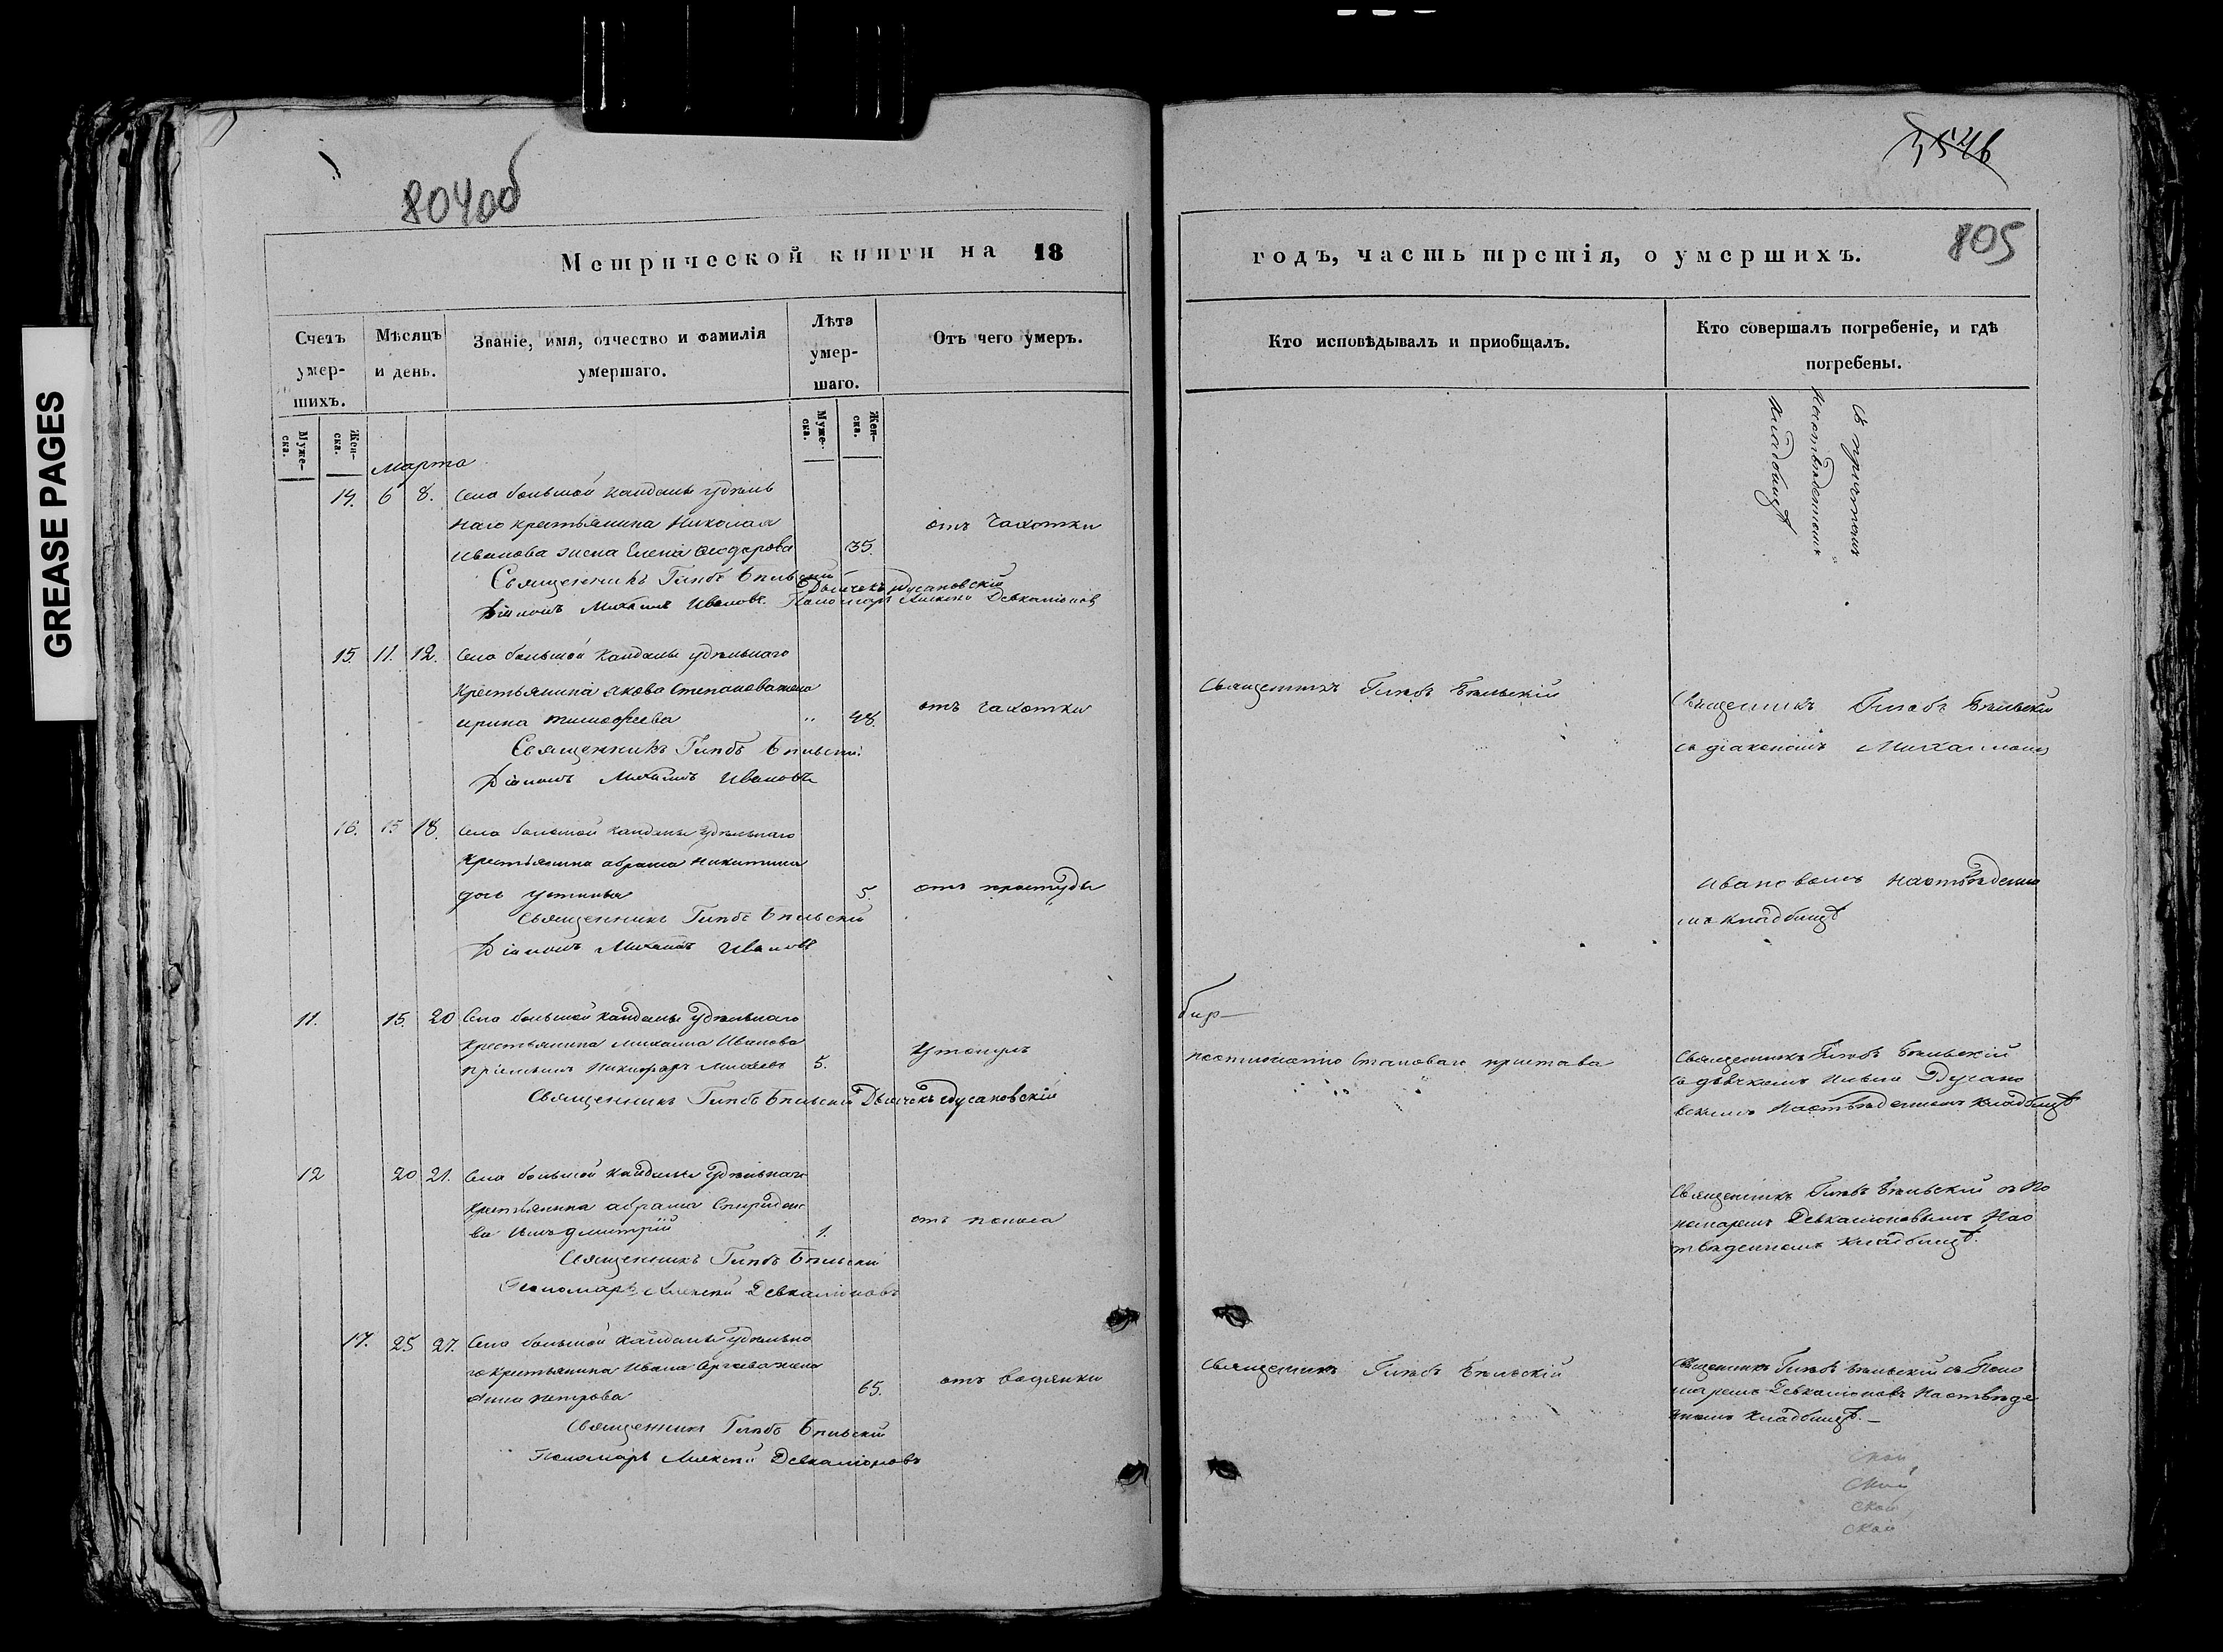 GREASE PAGES
804об
Метрической книги на 18
Счетъ умер-шихъ.
Мѣсяцъ и день.
Званіе, имя, отчество и фамилія умершаго.
Лѣта умер-шаго.
Отъ чего умеръ.
Муже-ска.
Жен-ска.
Муже-ска.
Жен-ска.
Марта
14. 6 8. Села большой Кандалы удѣль
наго крестьянина Николая
Иванова жена Елена Ѳеодорова 35. отъ чахотки
Священникъ Глѣбъ Бѣльскій
Дьячекъ Дусановскій
Діаконъ Михаилъ Ивановъ. Пономарь Алексѣй Девкаліоновъ
15. 11. 12. Села большой Кандалы удѣльнаго
Крестьянина Якова Степанова жена
Ирина Тимофеева " 48. отъ чахотки
Священникъ Глѣбъ Бѣльскій
Діаконъ Михаилъ Ивановъ
16. 15 18. Села большой Кандалы удѣльнаго
Крестьянина Абрама Никитина
дочь Устинья 5. отъ простуды
Священникъ Глѣбъ Бѣльскій
Діаконъ Михаилъ Ивановъ
11. 15. 20 Села большой Кандалы удѣльнаго
Крестьянина Михаила Иванова
пріемышъ Никифоръ 5. Утонулъ
Священникъ Глѣбъ Бѣльскій Дьячекъ Дусановскій
12 20 21. Села большой Кандалы удѣльнаго
Крестьянина Абрама Спиридоно
ва сынъ Дмитрій 1. отъ поноса
Священникъ Глѣбъ Бѣльскій
Пономарь Алексѣй Девкаліоновъ
17. 25 27. Села большой Кандалы удѣльна
го Крестьянина Ивана Сергеева жена
Анна Петрова 65. отъ водянки
Священникъ Глѣбъ Бѣльскій
Пономарь Алексѣй Девкаліоновъ
3546
805
годъ, часть третія, о умершихъ.
Кто исповѣдывалъ и приобщалъ.
Кто совершалъ погребеніе, и гдѣ погребены.
Съ причтомъ
На отведенномъ
Кладбищѣ
Священникъ Глѣбъ Бѣльскій
Священникъ Глѣбъ Бѣльскій
съ діакономъ Михаиломъ
Ивановымъ На отведенно
мъ Кладбищѣ
по отношенію Становаго пристава
Священникъ Глѣбъ Бѣльскій
съ дьячкомъ Дусано
вскимъ На отведенномъ Кладбищѣ
Священникъ Глѣбъ Бѣльскій съ По
номаремъ Девкаліоновымъ На о
тведенномъ Кладбищѣ.
Священникъ Глѣбъ Бѣльскій
Священникъ Глѣбъ Бѣльскій съ Поно
маремъ Девкаліоновъ На отведе
нномъ Кладбищѣ.